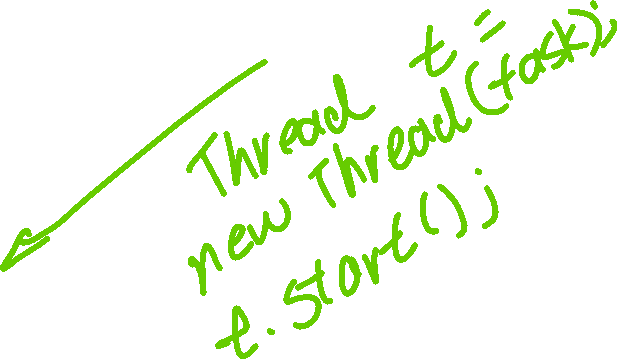 Thread t =
new Thread(task);
t.start();